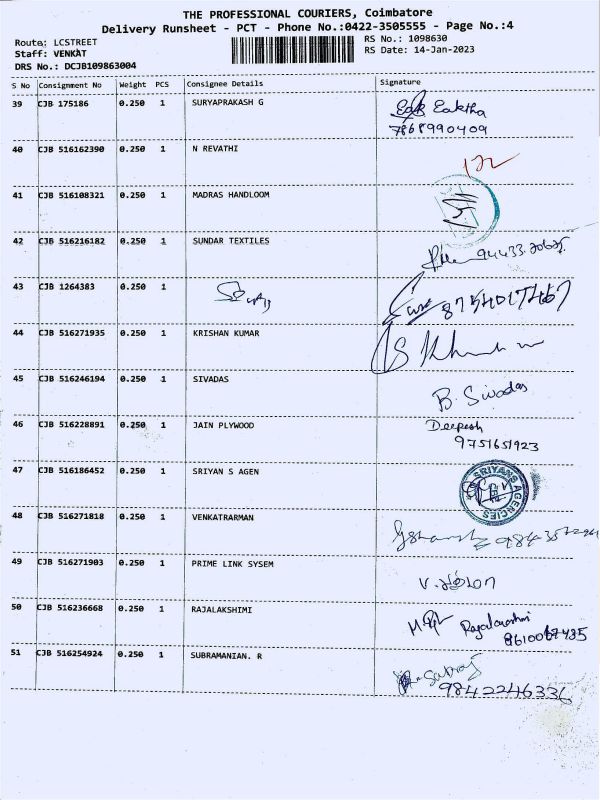 THE PROFESSIONAL COURIERS, Coimbatore
Delivery Runsheet - PCT - Phone No.:0422-3505555 - Page No.:4
Route: LCSTREET RS No.: 1098630
Staff: VENKAT RS Date: 14-Jan-2023
DRS No.: DCJB109863004
S No Consignment No Weight PCS Consignee Details Signature
39 CJB 175186 0.250 1 SURYAPRAKASH G Eaktha
7868990409
40 CJB 516162390 0.250 1 N REVATHI
41 CJB 516108321 0.250 1 MADRAS HANDLOOM
42 CJB 516216182 0.250 1 SUNDAR TEXTILES
43 CJB 1264383 0.250 1 8754017467
44 CJB 516271935 0.250 1 KRISHAN KUMAR
45 CJB 516246194 0.250 1 SIVADAS B. Sivadas
46 CJB 516228891 0.250 1 JAIN PLYWOOD Deepesh
9751651923
47 CJB 516186452 0.250 1 SRIYAN S AGEN SRIYANS AGENCIES
48 CJB 516271818 0.250 1 VENKATRARMAN
49 CJB 516271903 0.250 1 PRIME LINK SYSEM
50 CJB 516236668 0.250 1 RAJALAKSHIMI
51 CJB 516254924 0.250 1 SUBRAMANIAN. R
9842246336